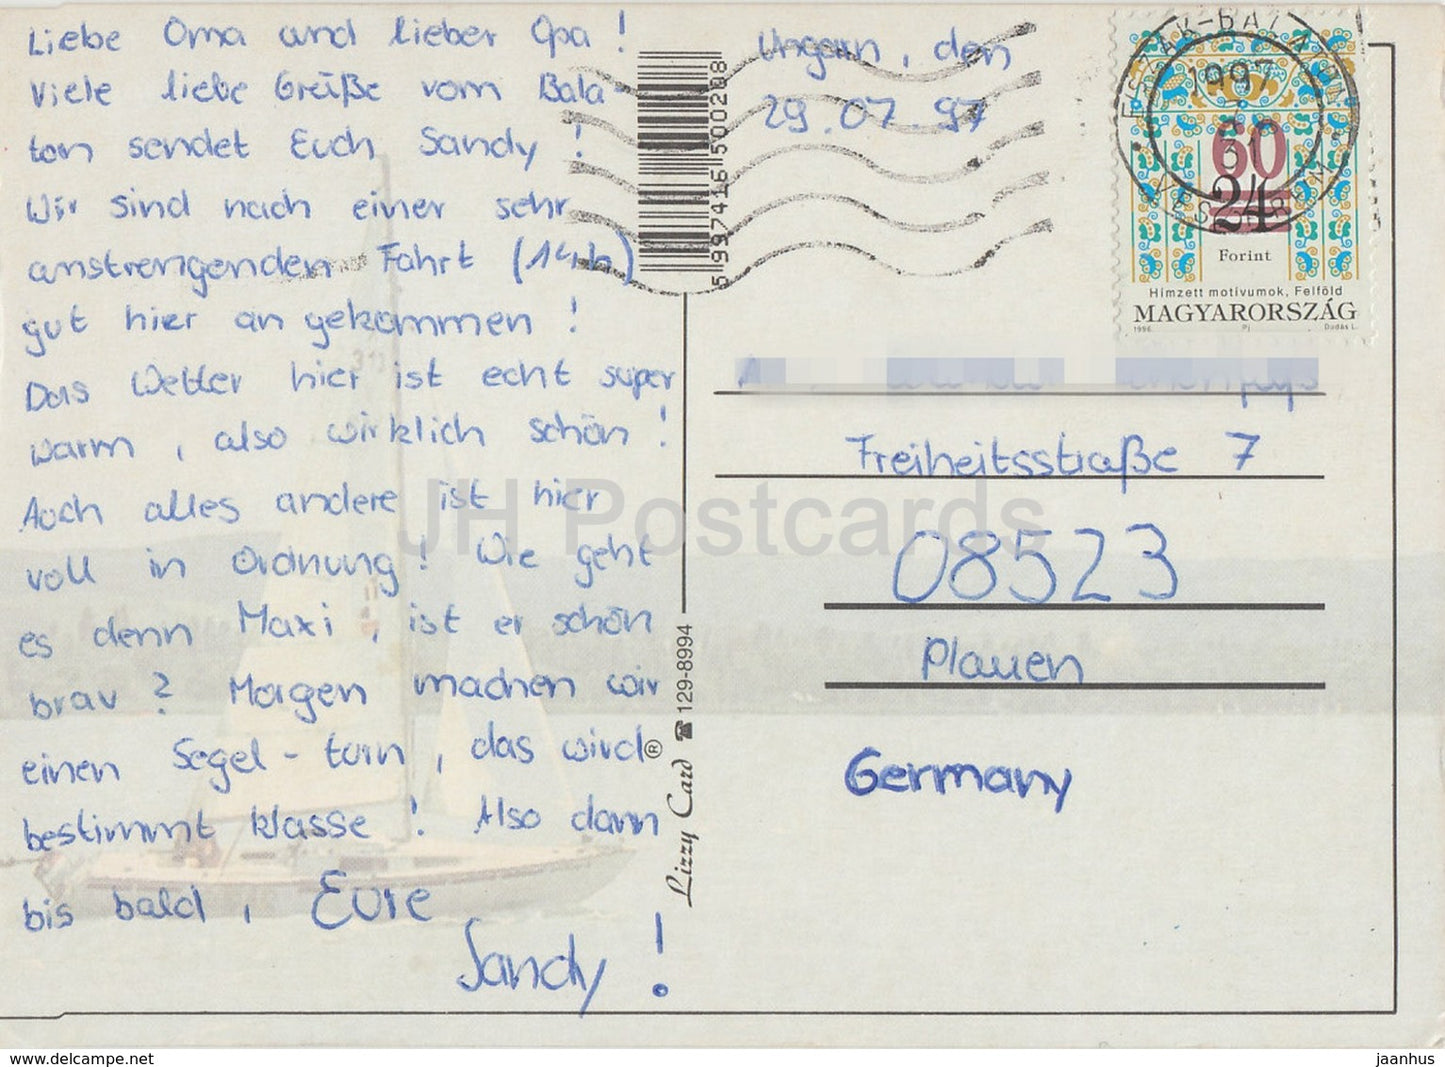 Liebe Oma und lieber Opa !
Viele liebe Grüße vom Bala-
ton sendet Euch Sandy !
Wir sind nach einer sehr
anstrengenden Fahrt (14h)
gut hier angekommen !
Das Wetter hier ist echt super
warm , also wirklich schön !
Auch alles andere ist hier
voll in Ordnung ! Wie geht
es denn Maxi , ist er schön
brav ? Morgen machen wir
einen Segel-turn , das wird
bestimmt klasse ! Also dann
bis bald , Eure
Sandy !
5997416500208
Ungarn , den
29.07.97
1997
31
VESZPRÉM
60
24
Forint
Hímzett motívumok, Felföld
MAGYARORSZÁG
1996. Pj Dudás L.
Freiheitsstraße 7
08523
Plauen
Germany
Lizzy Card® ☎ 129-8994
JH Postcards
www.delcampe.net
jaanhus